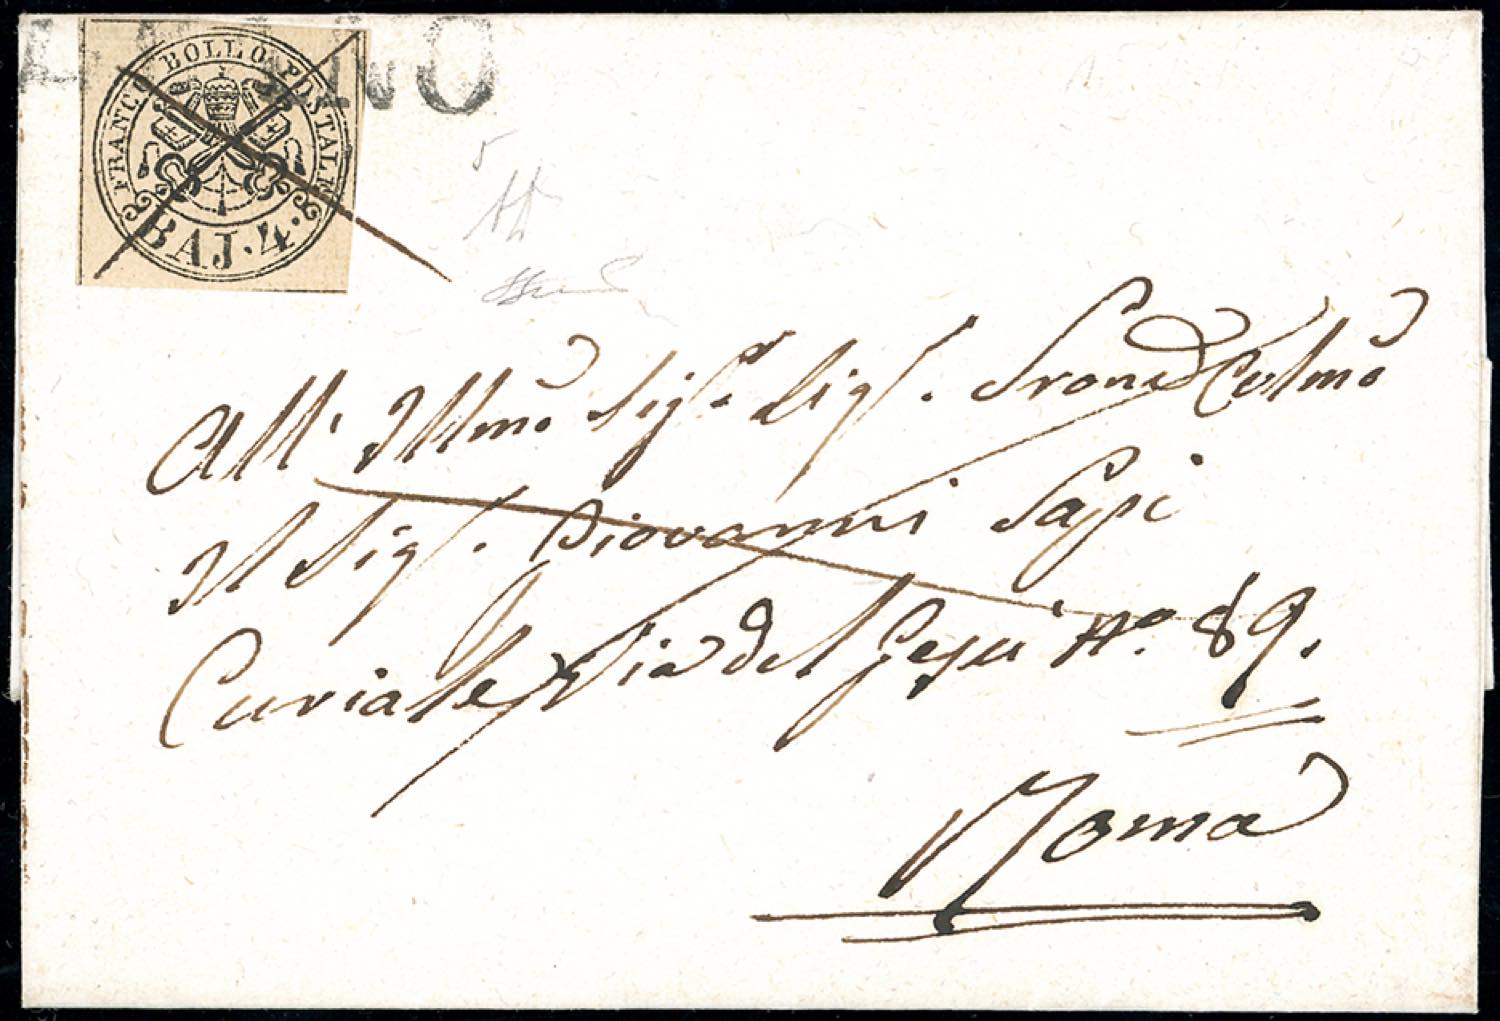 FRANCO BOLLO POSTALE
BAJ. 4.
All' Illmo Sigr. Sig. Prone Colmo
Il Sig. Giovanni
Curiale Via del Gesù No. 89.
Roma